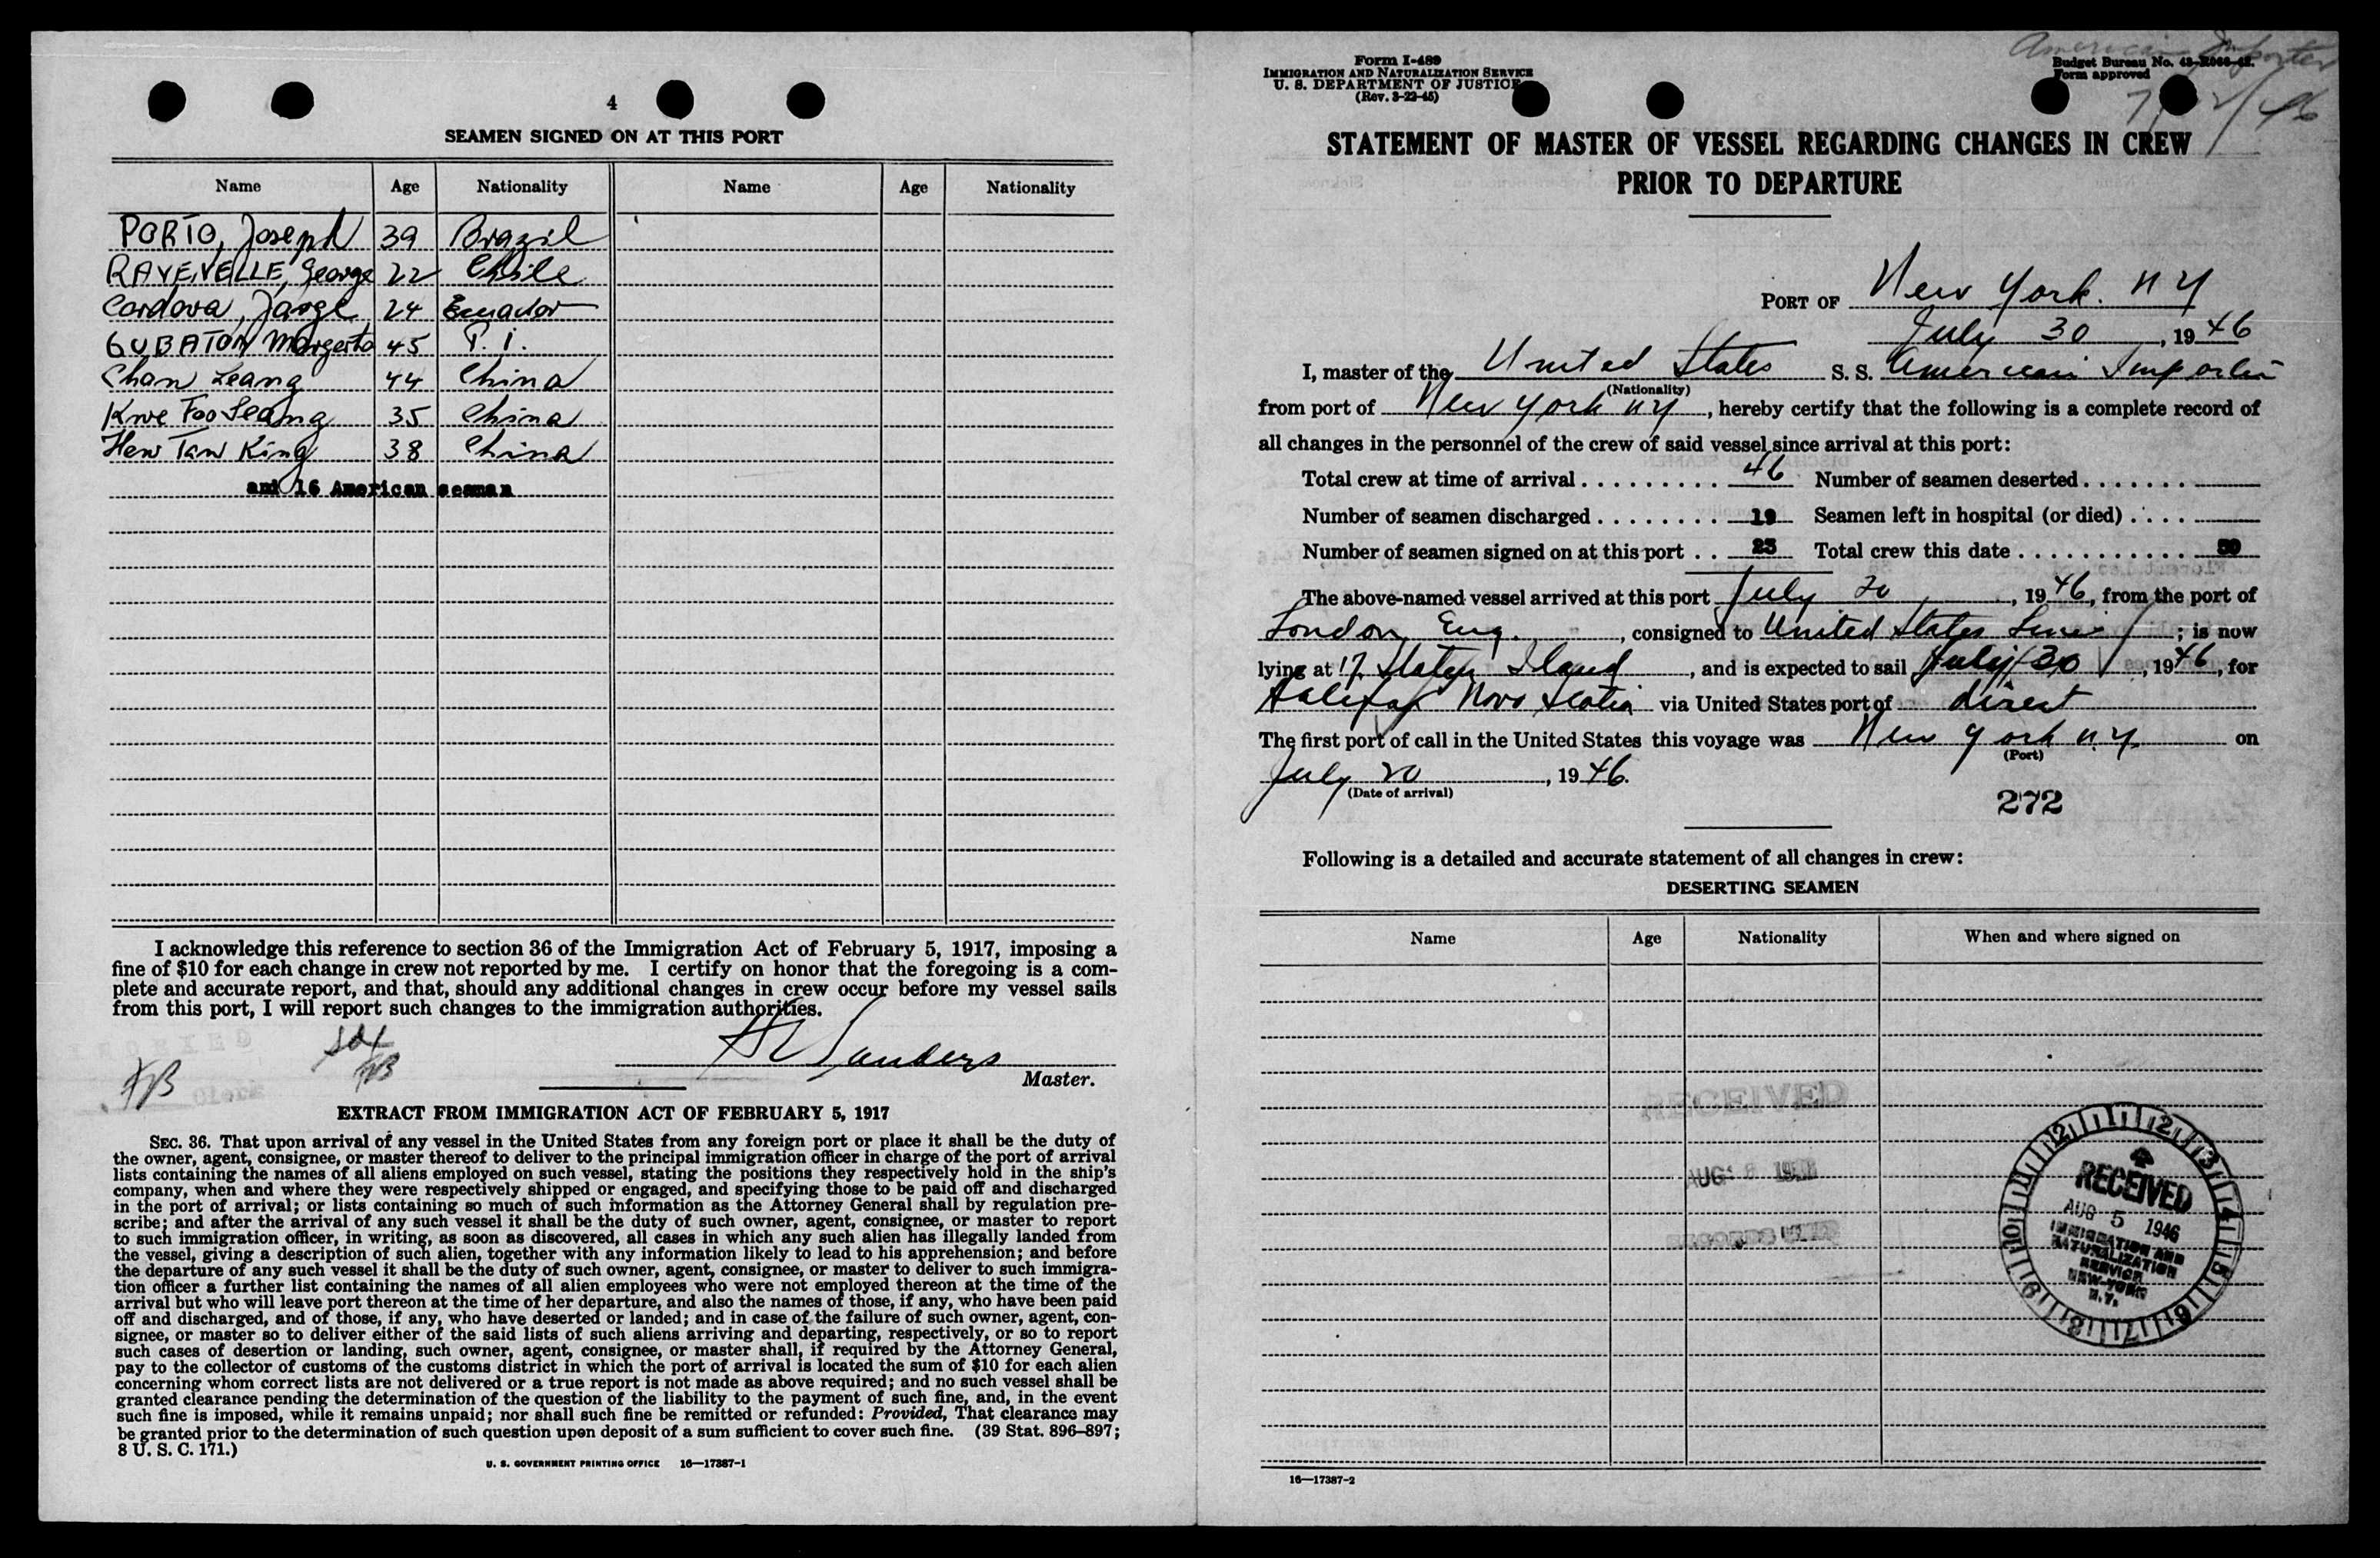 4
SEAMEN SIGNED ON AT THIS PORT
Name Age Nationality Name Age Nationality
PORTO, Joseph 39 Brazil
RAVEVELLE, George 22 Chile
Cordova, Jorge 24 Ecuador
GUBATON Margarito 45 P. I.
Chan Leang 44 China
Kwe Foo Seang 35 China
Hew Tan King 38 China
and 16 American seaman
I acknowledge this reference to section 36 of the Immigration Act of February 5, 1917, imposing a
fine of $10 for each change in crew not reported by me. I certify on honor that the foregoing is a com-
plete and accurate report, and that, should any additional changes in crew occur before my vessel sails
from this port, I will report such changes to the immigration authorities.
Sanders
Master.
EXTRACT FROM IMMIGRATION ACT OF FEBRUARY 5, 1917
SEC. 36. That upon arrival of any vessel in the United States from any foreign port or place it shall be the duty of
the owner, agent, consignee, or master thereof to deliver to the principal immigration officer in charge of the port of arrival
lists containing the names of all aliens employed on such vessel, stating the positions they respectively hold in the ship's
company, when and where they were respectively shipped or engaged, and specifying those to be paid off and discharged
in the port of arrival; or lists containing so much of such information as the Attorney General shall by regulation pre-
scribe; and after the arrival of any such vessel it shall be the duty of such owner, agent, consignee, or master to report
to such immigration officer, in writing, as soon as discovered, all cases in which any such alien has illegally landed from
the vessel, giving a description of such alien, together with any information likely to lead to his apprehension; and before
the departure of any such vessel it shall be the duty of such owner, agent, consignee, or master to deliver to such immigra-
tion officer a further list containing the names of all alien employees who were not employed thereon at the time of the
arrival but who will leave port thereon at the time of her departure, and also the names of those, if any, who have been paid
off and discharged, and of those, if any, who have deserted or landed; and in case of the failure of such owner, agent, con-
signee, or master so to deliver either of the said lists of such aliens arriving and departing, respectively, or so to report
such cases of desertion or landing, such owner, agent, consignee, or master shall, if required by the Attorney General,
pay to the collector of customs of the customs district in which the port of arrival is located the sum of $10 for each alien
concerning whom correct lists are not delivered or a true report is not made as above required; and no such vessel shall be
granted clearance pending the determination of the question of the liability to the payment of such fine, and, in the event
such fine is imposed, while it remains unpaid; nor shall such fine be remitted or refunded: Provided, That clearance may
be granted prior to the determination of such question upon deposit of a sum sufficient to cover such fine. (39 Stat. 896–897;
8 U. S. C. 171.)
U. S. GOVERNMENT PRINTING OFFICE 16—17387-1
American Importer
Form I-489
IMMIGRATION AND NATURALIZATION SERVICE
U. S. DEPARTMENT OF JUSTICE
(Rev. 3-22-45)
Budget Bureau No.
Form approved
STATEMENT OF MASTER OF VESSEL REGARDING CHANGES IN CREW
PRIOR TO DEPARTURE
PORT OF New York. N Y
July 30, 1946
I, master of the United States S. S. American Importer
(Nationality)
from port of New York NY, hereby certify that the following is a complete record of
all changes in the personnel of the crew of said vessel since arrival at this port:
Total crew at time of arrival . . . . . . . . . 46 Number of seamen deserted . . . . . . .
Number of seamen discharged . . . . . . . . 19 Seamen left in hospital (or died) . . . .
Number of seamen signed on at this port . . 23 Total crew this date . . . . . . . . . . . 50
The above-named vessel arrived at this port July 20, 1946, from the port of
London, Eng., consigned to United States Line; is now
lying at 17 Staten Island, and is expected to sail July 30, 1946, for
Halifax Nova Scotia via United States port of direct
The first port of call in the United States this voyage was New York N.Y. on
(Port)
July 20, 1946.
(Date of arrival)
272
Following is a detailed and accurate statement of all changes in crew:
DESERTING SEAMEN
Name Age Nationality When and where signed on
RECEIVED
AUG
RECEIVED
AUG 5 1946
IMMIGRATION AND
NATURALIZATION
SERVICE
NEW-YORK
N.Y.
16—17387-2